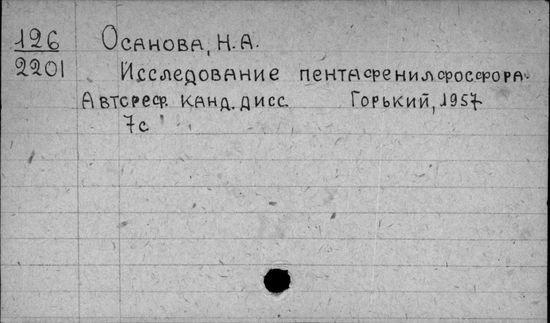 126 Осанова, Н.А.
2201 Исследование пентафенилфосфора.
Автореф. канд. дисс. Горький, 1957
7с